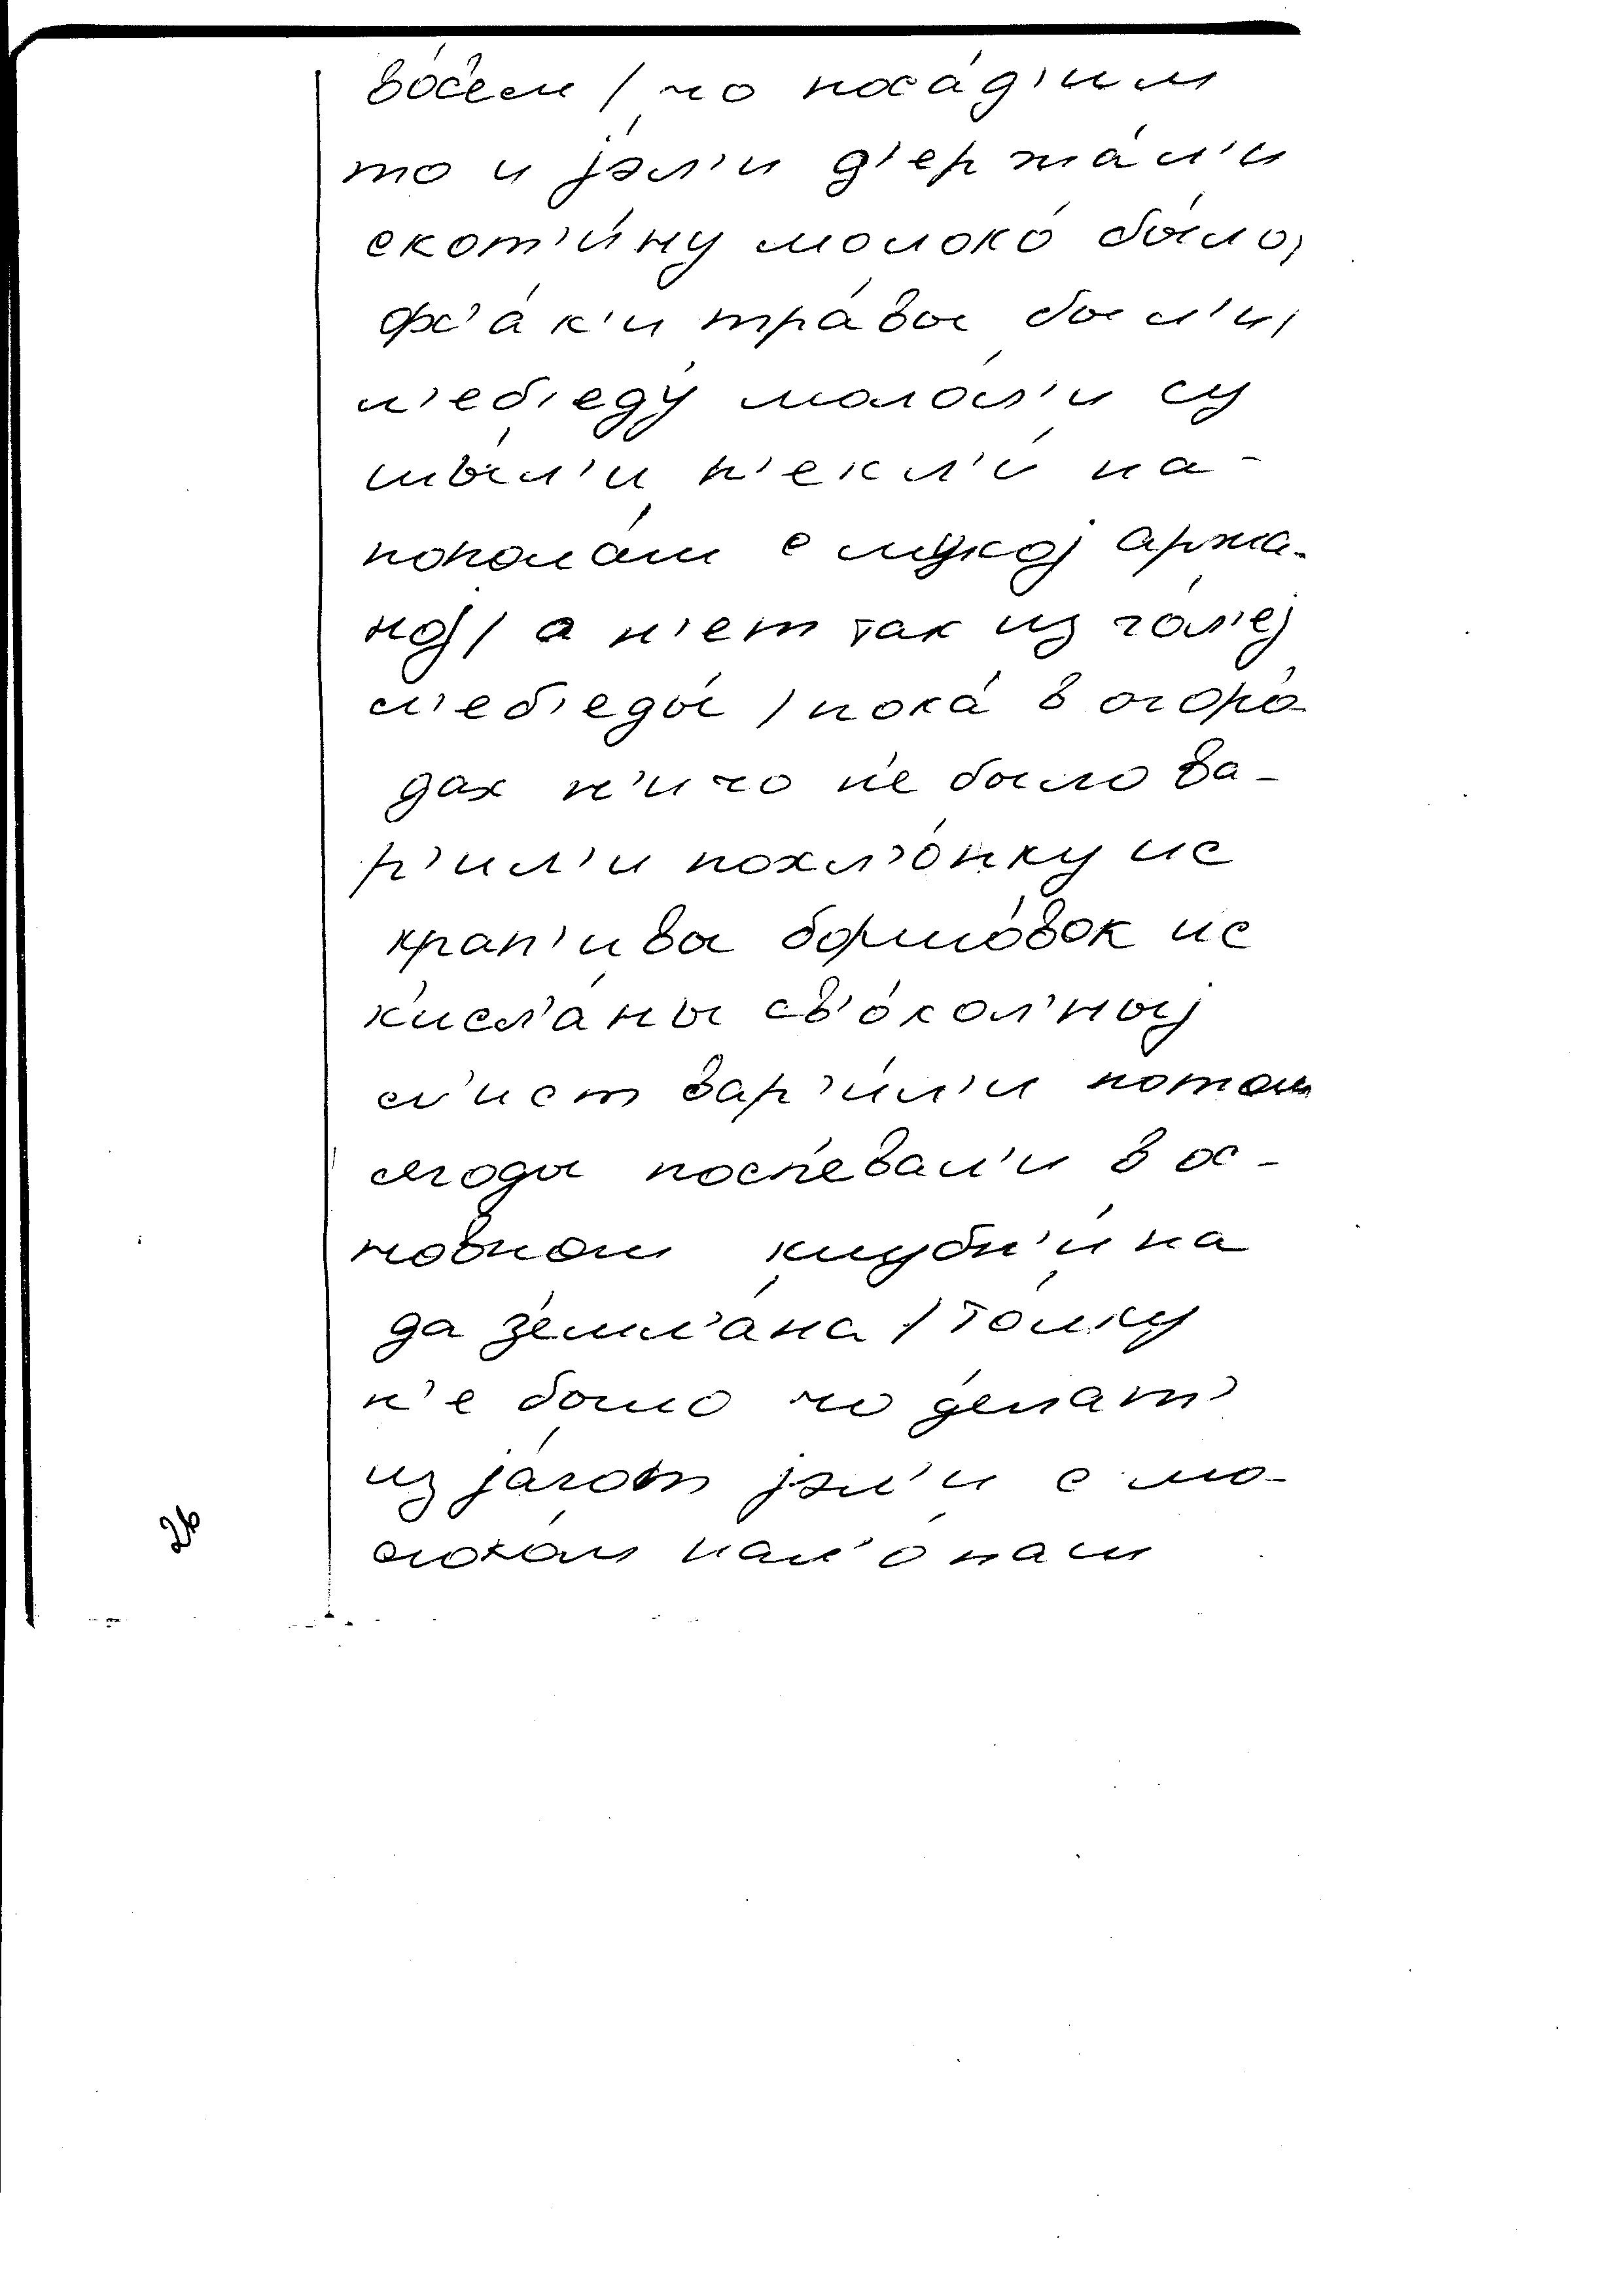 во́с'ем / чо поса́д'им
то и jэ́л'и д'ержа́л'и
скот'и́ну молоко́ бы́ло,
фс'а́к'и тра́вы был'и,
л'еб'еду́ моло́л'и су
шы́л'и п'екл'и́ на-
попола́м с мукоj аржа-
ноj / а н'ет так из го́л'еj
л'еб'еды́ / пока́ в огоро́
дах н'ичо н'е было ва-
р'ил'и похл'о́пку ис
крап'ивы боршо́вок ис
к'исл'а́ны св'о́кол'ныj
л'ист вар'и́л'и потом
ягоды посп'евал'и в ос-
новном клубн'и́на
да з'емл'а́на / то́лку
н'е было чо д'елат'
из jа́гот jэл'и с мо-
локо́м нал'о́пам
26